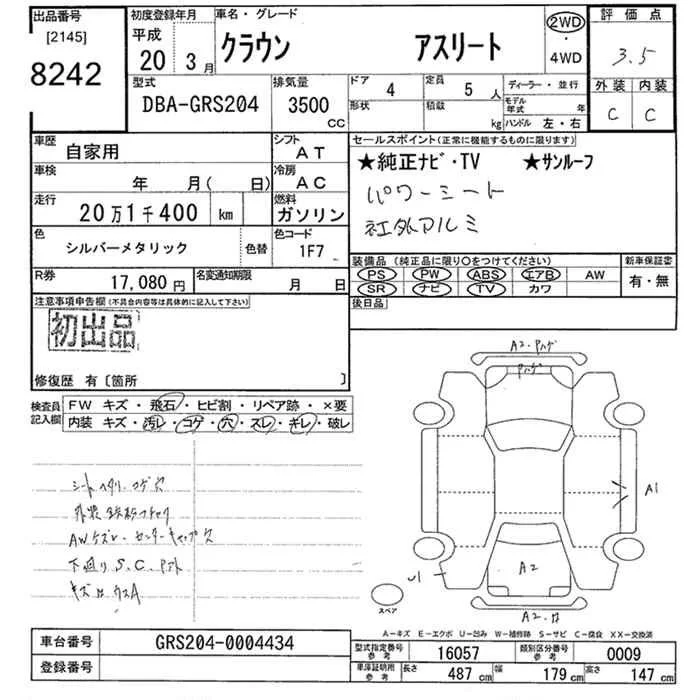 出品番号
[2145]
8242
初度登録年月
平成
20年 3月
車名・グレード
クラウン アスリート
2WD
・
4WD
評価点
3.5
外装 内装
C C
型式
DBA-GRS204
排気量
3500
CC
ドア 4
定員 5 人
形状
積載 kg
ディーラー・並行
モデル年式 年
ハンドル 左・右
車歴
自家用
シフト
AT
車検
年 月( 日)
冷房
AC
走行
20万1千400 km
燃料
ガソリン
色
シルバーメタリック
色替
色コード
1F7
R券
17,080円
名変通知期限
月 日
セールスポイント(正常に機能するものに限ります)
★純正ナビ・TV ★サンルーフ
パワーシート
社外アルミ
装備品(純正品に限り○をつけてください)
PS PW ABS エアB AW
SR ナビ TV カワ
新車保証書
有・無
後日品
注意事項申告欄(不具合内容等は具体的に記入して下さい)
初出品
修復歴 有〔箇所 〕
検査員記入欄
FW キズ・飛石・ヒビ割・リペア跡・×要
内装 キズ・汚レ・コゲ・穴・スレ・キレ・破レ
シートヘタリ、コゲ穴
下廻りS.C.
A2・ハゲ
ハゲ
A1
A2
U1
A2・
スペア
A-キズ E-エクボ U-凹み W-補修跡 S-サビ C-腐食 XX-交換済
車台番号
GRS204-0004434
登録番号
型式指定番号 参考
16057
類別区分番号 参考
0009
車庫証明用 参考
長さ 487 cm
幅 179 cm
高さ 147 cm